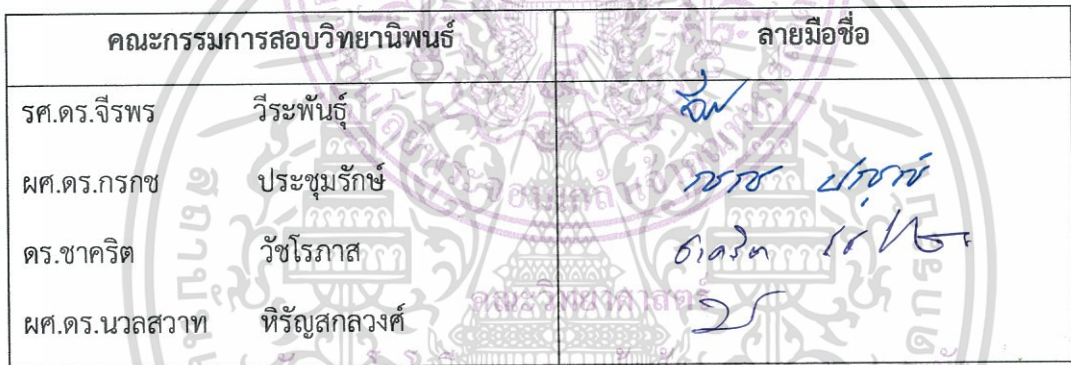 คณะกรรมการสอบวิทยานิพนธ์ ลายมือชื่อ
รศ.ดร.จีรพร วีระพันธุ์
ผศ.ดร.กรกช ประชุมรักษ์
ดร.ชาคริต วัชโรภาส ชาคริต
ผศ.ดร.นวลสวาท หิรัญสกลวงศ์
คณะวิทยาศาสตร์